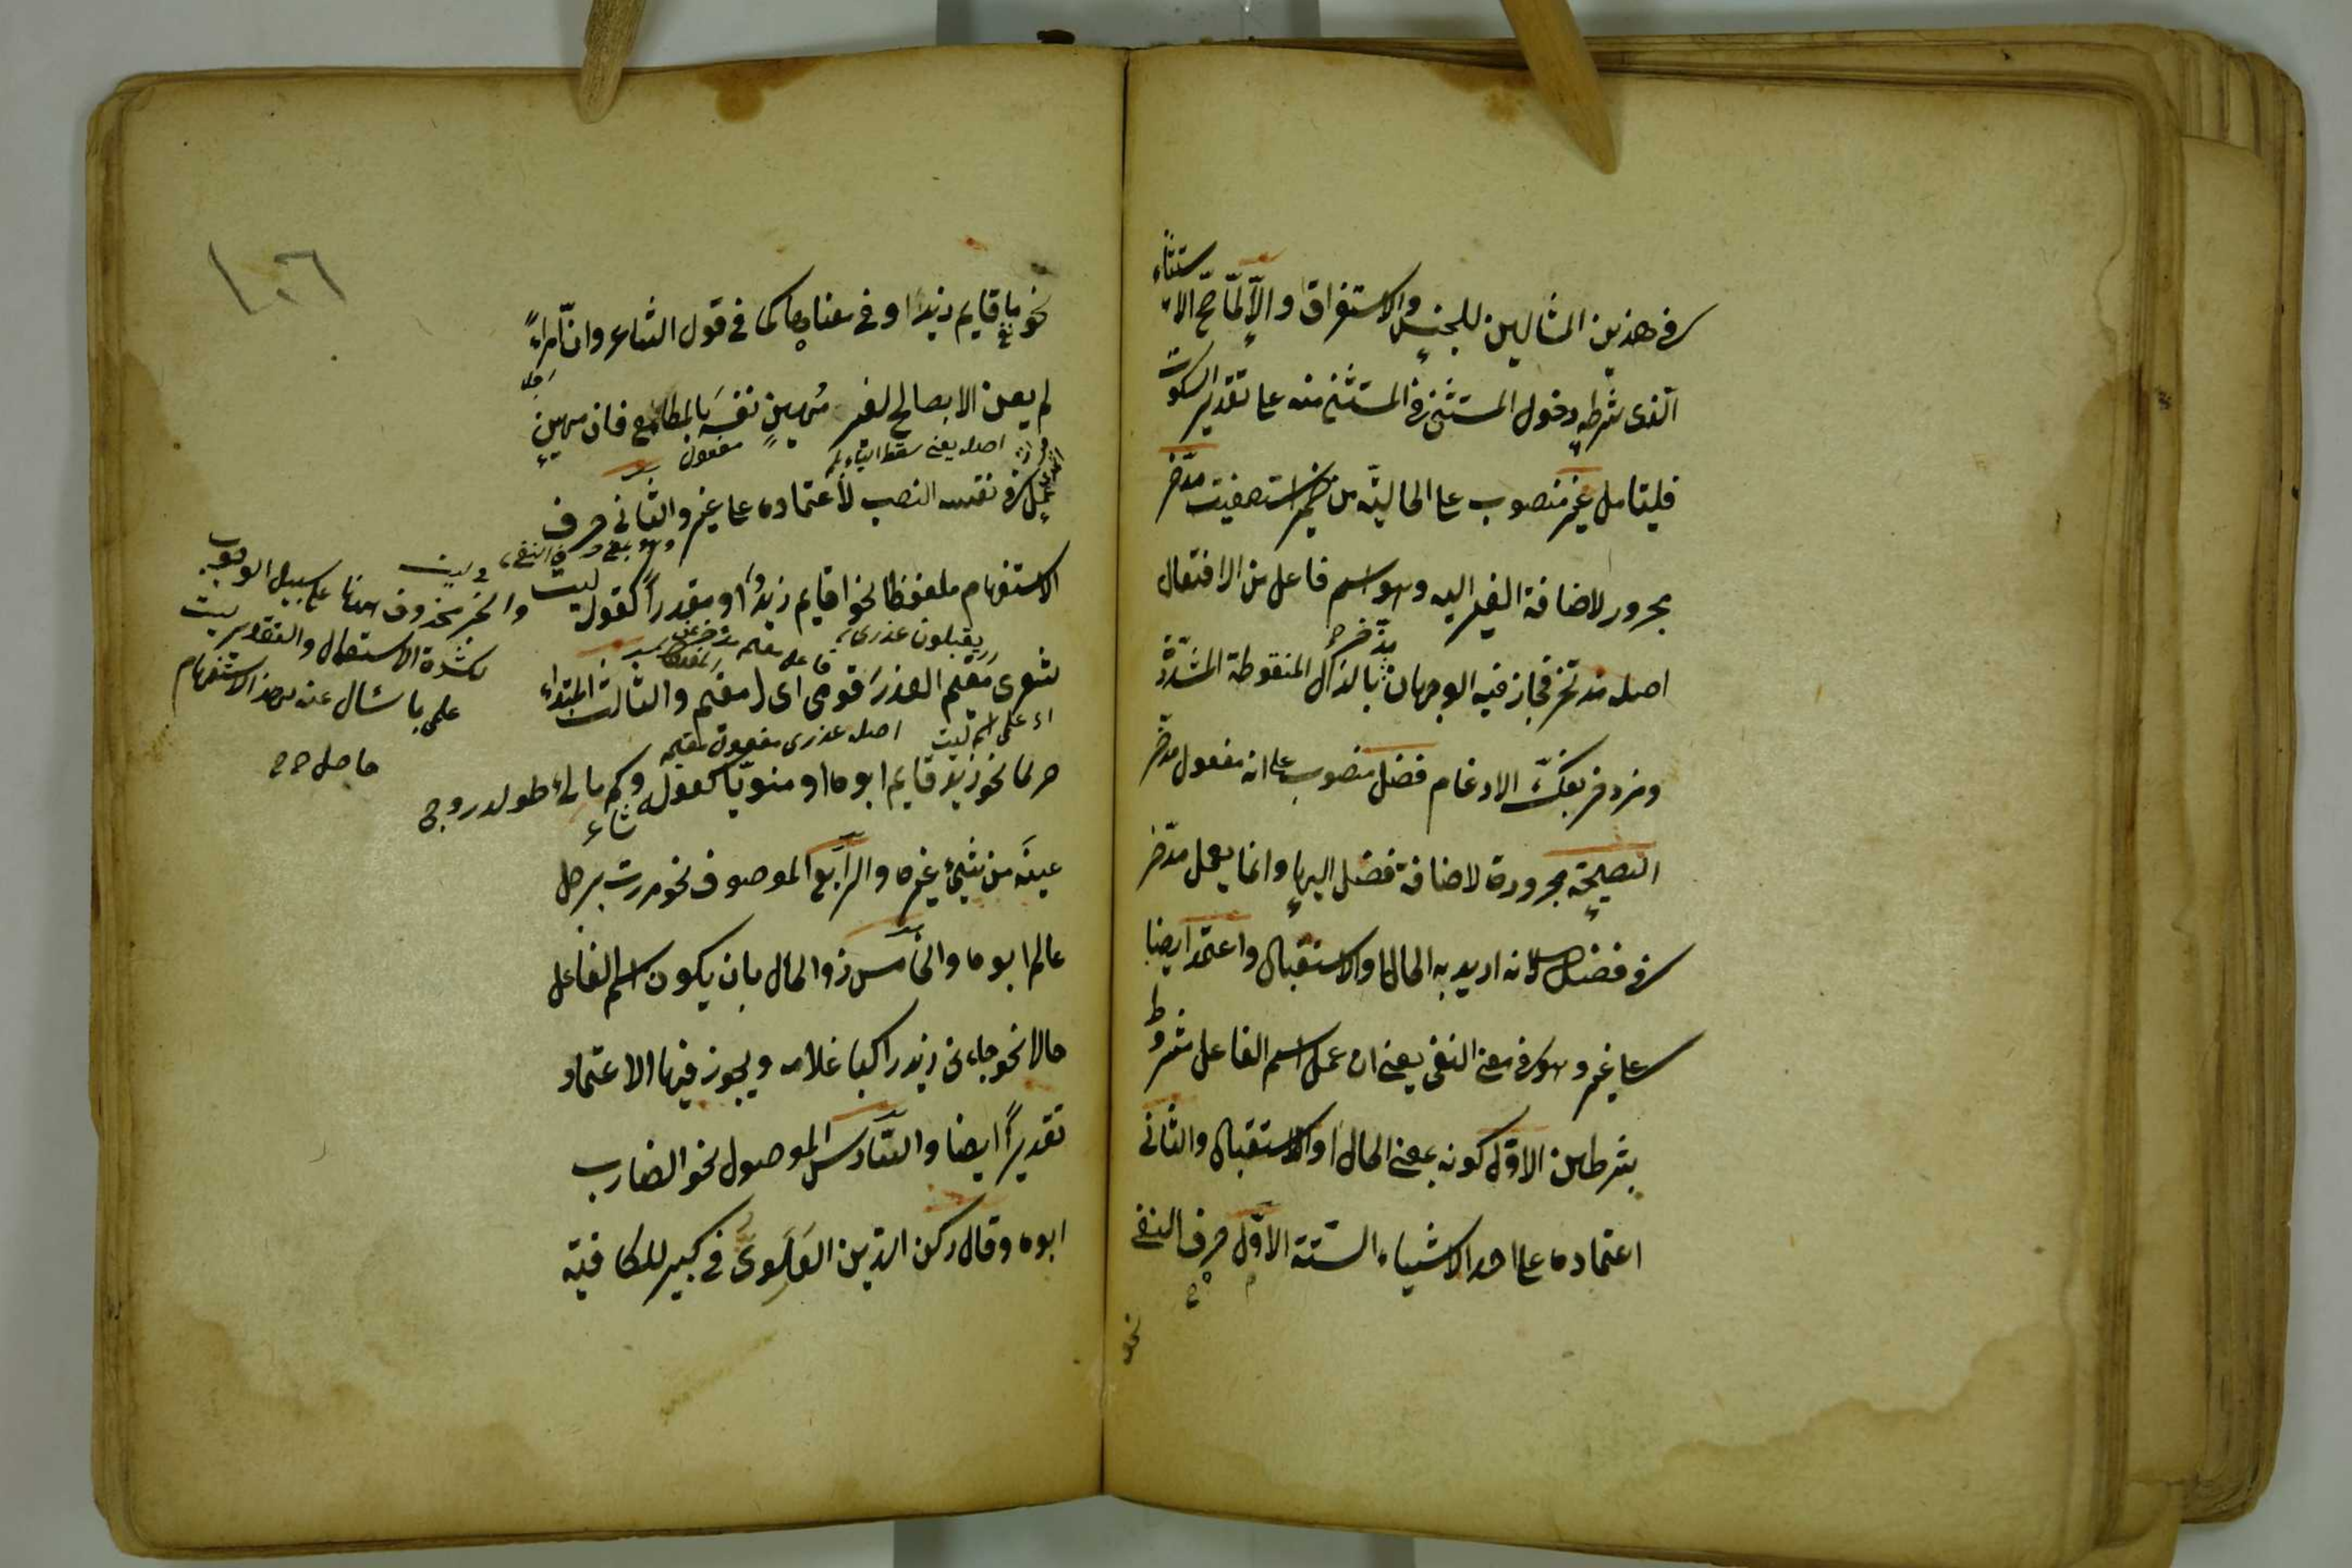 في هذين المثالين للجنس والاستغراق والّا لمّا صحّ الاستثناء
الّذي شرطه دخول المستثنى في المستثنى منه على تقدير السكوت
فليتامل غير منصوب على الحاليّة من ضمير استصفيت مدّخر
مجرور لاضافة الغير اليه وهو اسم فاعل من الافتعال
اصله مذتخر فجاز فيه الوجهان مذّخر بالذال المنقوطة المشدّدة
ومزدخر بفكّ الادغام فضل منصوب على انه مفعول مدّخر
النصيحة مجرورة لاضافة فضل اليها وانما يعمل مدّخر
في فضل لانه اريد به الحال او الاستقبال واعتمد ايضا
على غير وهو في معنى النفي يعني ان عمل اسم الفاعل مشروط
بشرطين الاوّل كونه بمعنى الحال او الاستقبال والثاني
اعتماده على احد الاشياء الستّة الاوّل حرف النفي
نحو
١٠٦
نحو ما قايم زيد او في معناها كما في قول الشاعر وانّ امراءً
لم يعن الا بصالح لغير مُهينٍ نفسَه بالمطامع فان مهينٍ
اصله يعنى سقط الياء بلم
مفعول
عمل في نفسه النصب لاعتماده على غير والثاني حرف
الاستفهام ملفوظا نحو اقايم زيدٌ او مقدراً كقوله ليت
يقبلون عذرى
شعرى مقيم العذرَ قومى اى امقيم والثالث المبتداء
اصله عذرى مفعول مقيم
نحو زيد قايم ابوه او منويّا كقوله وكم مالئ
عينَه من شيء غيره والرّابع الموصوف نحو مررت برجل
عالم ابوه والخامس ذو الحال بان يكون اسم الفاعل
حالا نحو جاءنى زيد راكبا غلامه ويجوز فيها الاعتماد
تقديراً ايضا والسّادس الموصول نحو الضارب
ابوه وقال ركن الدّين العَلَوىّ في كبير للكافية
والخبر محذوف هنا على سبيل الوجوب
لكثرة الاستعمال والتقدير ليت
علمى بما سئال عنه بهذا الاستفهام
حاصل